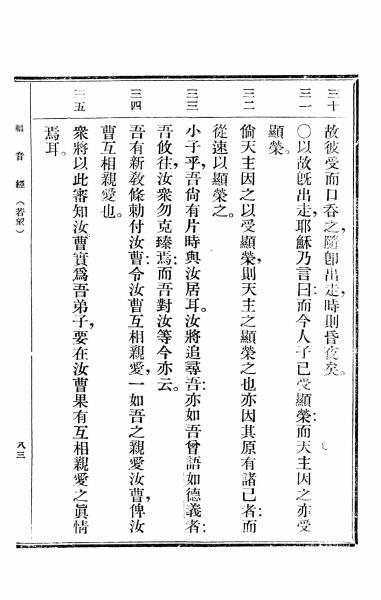 三十
故彼受而口吞之,隨卽出走,時則昏夜矣。
三一
〇以故旣出走,耶穌乃言曰:而今人子已受顯榮:而天主因之亦受
顯榮。
三二
倘天主因之以受顯榮,則天主之顯榮之也亦因其原有諸己者:而
從速以顯榮之。
三三
小子乎,吾尙有片時與汝居耳。汝將追尋吾:亦如吾曾語如德義者:
吾攸往,汝衆勿克臻焉:而吾對汝等今亦云。
三四
吾有新敎條勅付汝曹:令汝曹互相親愛,一如吾之親愛汝曹,俾汝
曹互相親愛也。
三五
衆將以此審知汝曹實爲吾弟子,要在汝曹果有互相親愛之眞情
焉耳。
福音經(若望)
八三